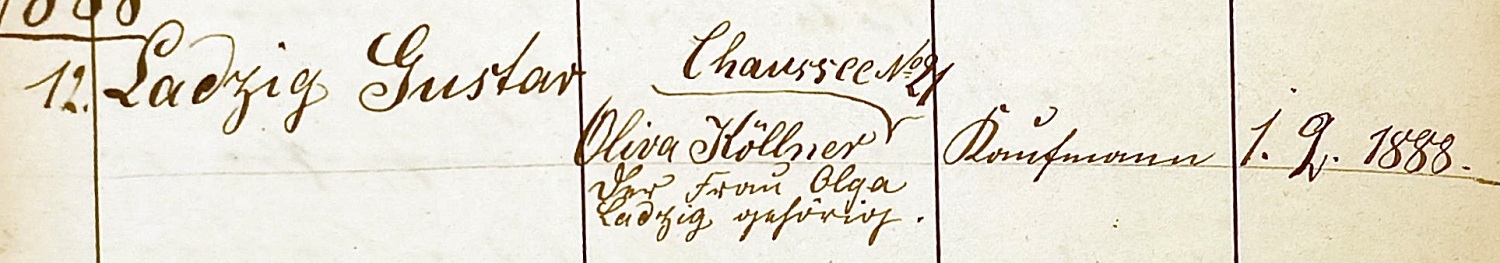 1888
12. Ladzig Gustav
Chaussee No 21
Oliva Köllner
der Frau Olga
Ladzig gehörig.
Kaufmann
1. 2. 1888.